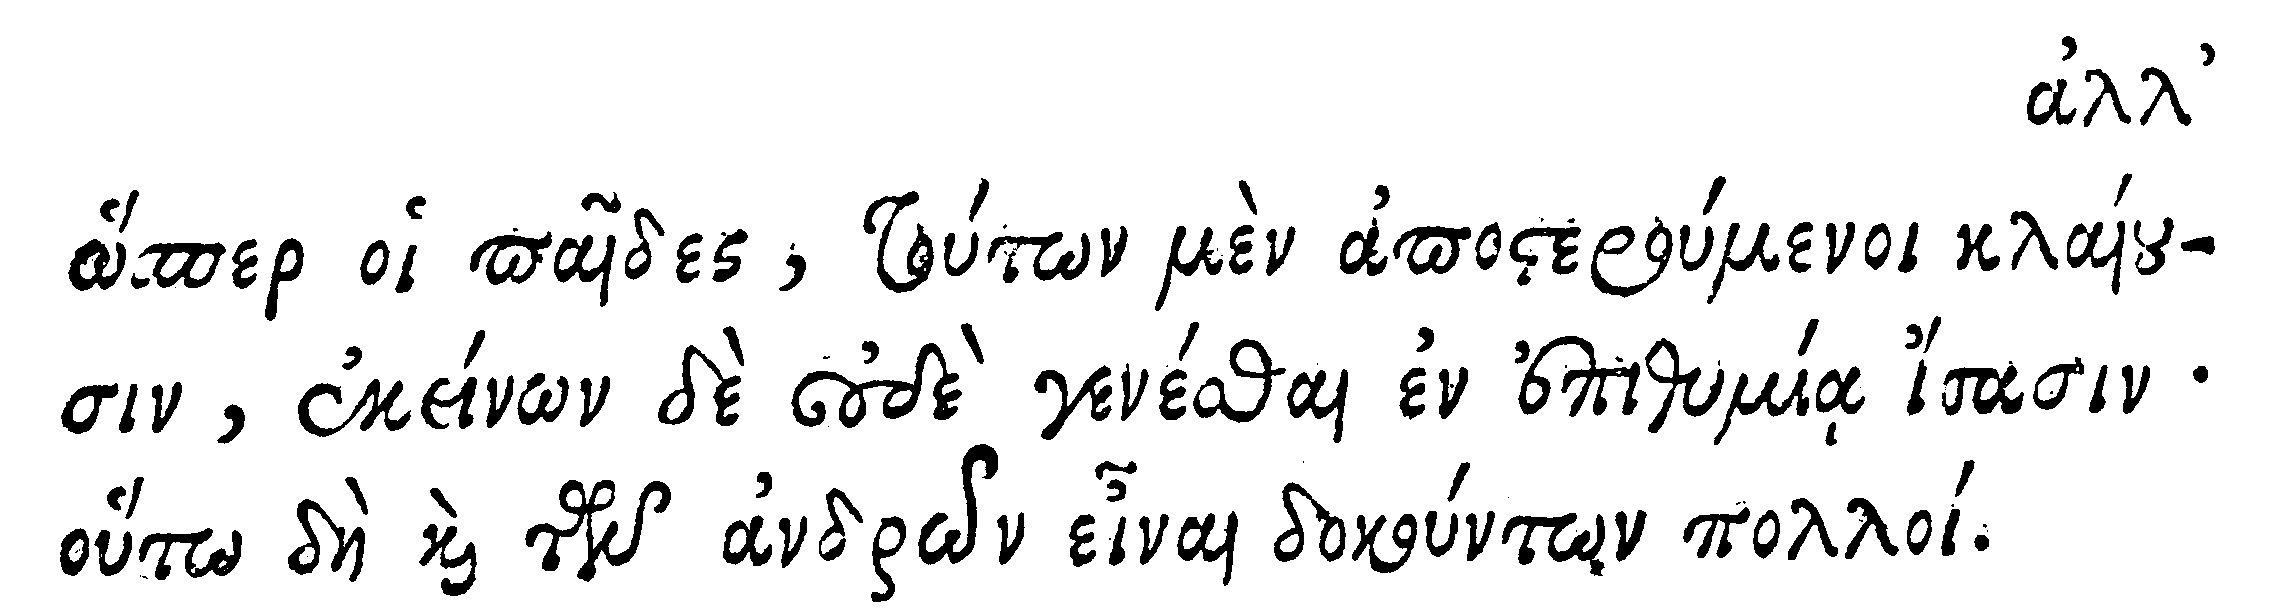 ἀλλ’
ὥσπερ οἱ παῖδες, τούτων μὲν ἀποστερούμενοι κλαίου-
σιν, ἐκείνων δὲ οὐδὲ γενέσθαι ἐν ἐπιθυμίᾳ ἴσασιν·
οὕτω δὴ καὶ τῶν ἀνδρῶν εἶναι δοκούντων πολλοί.